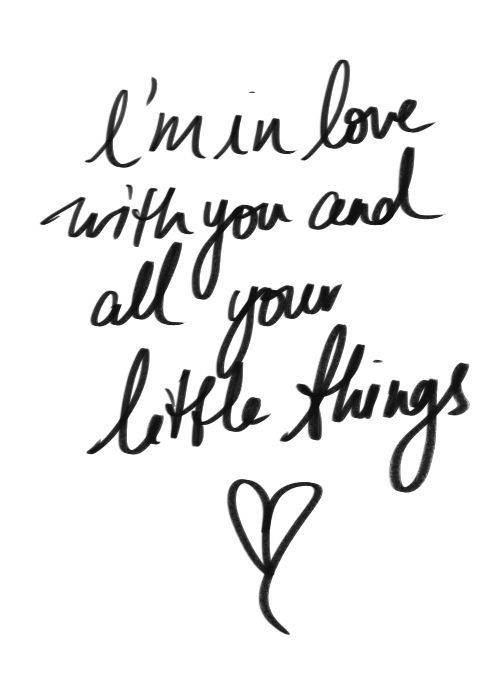 I'm in love
with you and
all your
little things